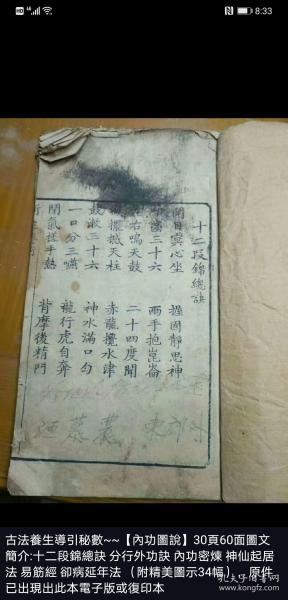 HD 4G
8:33
十二段錦總訣
閉目冥心坐 握固靜思神
叩齒三十六 兩手抱崑崙
左右鳴天鼓 二十四度聞
微擺撼天柱 赤龍攪水津
鼓漱三十六 神水滿口勻
一口分三嚥 龍行虎自奔
閉氣搓手熱 背摩後精門
古法養生導引秘數~~【內功圖說】30頁60面圖文
簡介:十二段錦總訣 分行外功訣 內功密煉 神仙起居
法 易筋經 卻病延年法 （附精美圖示34幅）、原件
已出現出此本電子版或復印本
孔夫子旧书网